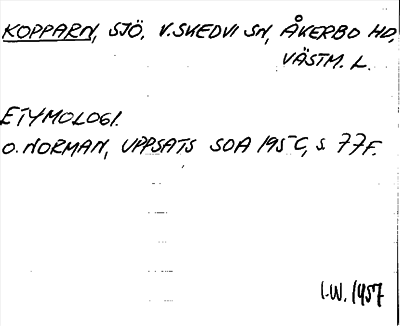 KOPPARN, SJÖ, V. SKEDVI SN, ÅKERBO HD,
VÄSTM. L.
ETYMOLOGI.
O. NORMAN, UPPSATS SOA 195 C, S 77F.
I.W. 1957